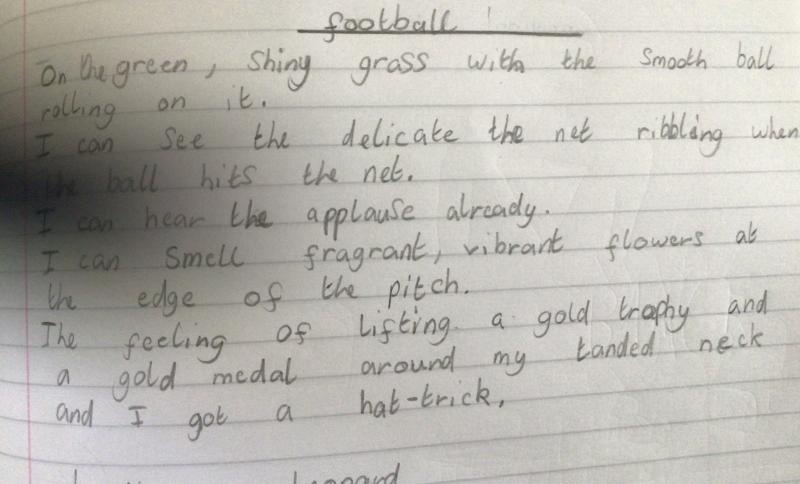 football
On the green, shiny grass with the smooth ball
rolling on it.
I can see the delicate the net ribbling when
the ball hits the net.
I can hear the applause already.
I can smell fragrant, vibrant flowers at
the edge of the pitch.
The feeling of lifting a gold trophy and
a gold medal around my tanded neck
and I got a hat-trick,